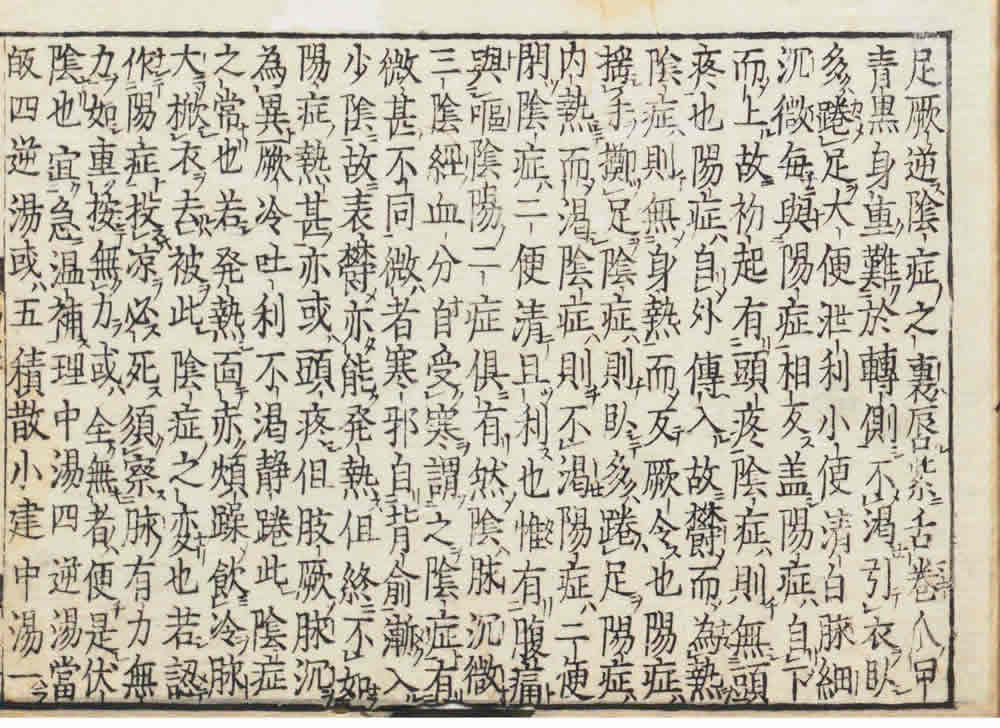 足厥逆陰症之裏唇紫舌卷人甲
青黒身重難於轉側不渇引衣臥
多踡足大便泄利小便清白脉細
沉微毎與陽症相反盖陽症自下
而上故初起有頭疼陰症則無頭
疼也陽症自外傳入故欝而為熱
陰症則無身熱而反厥令也陽症
揚手擲足陰症則臥多踡足陽症
内熱而渇陰症則不渇陽症二便
閉陰症二便清且利也惟有腹痛
與嘔陰陽二症俱有然陰脉沉微
三陰經血分自受寒謂之陰症有
微甚不同微者寒邪自背俞漸入
少陰故表欝亦能発熱但終不如
陽症熱甚亦或頭疼但肢厥脉沉
為異厥冷吐利不渇静踡此陰症
之常也若発熱面赤煩躁飲冷脉
大揿衣去被此陰症之変也若認
作陽症投凉必死須察脉有力無
力如重按無力或全無者便是伏
陰也宜急温補理中湯四逆湯當
皈四逆湯或五積散小建中湯一